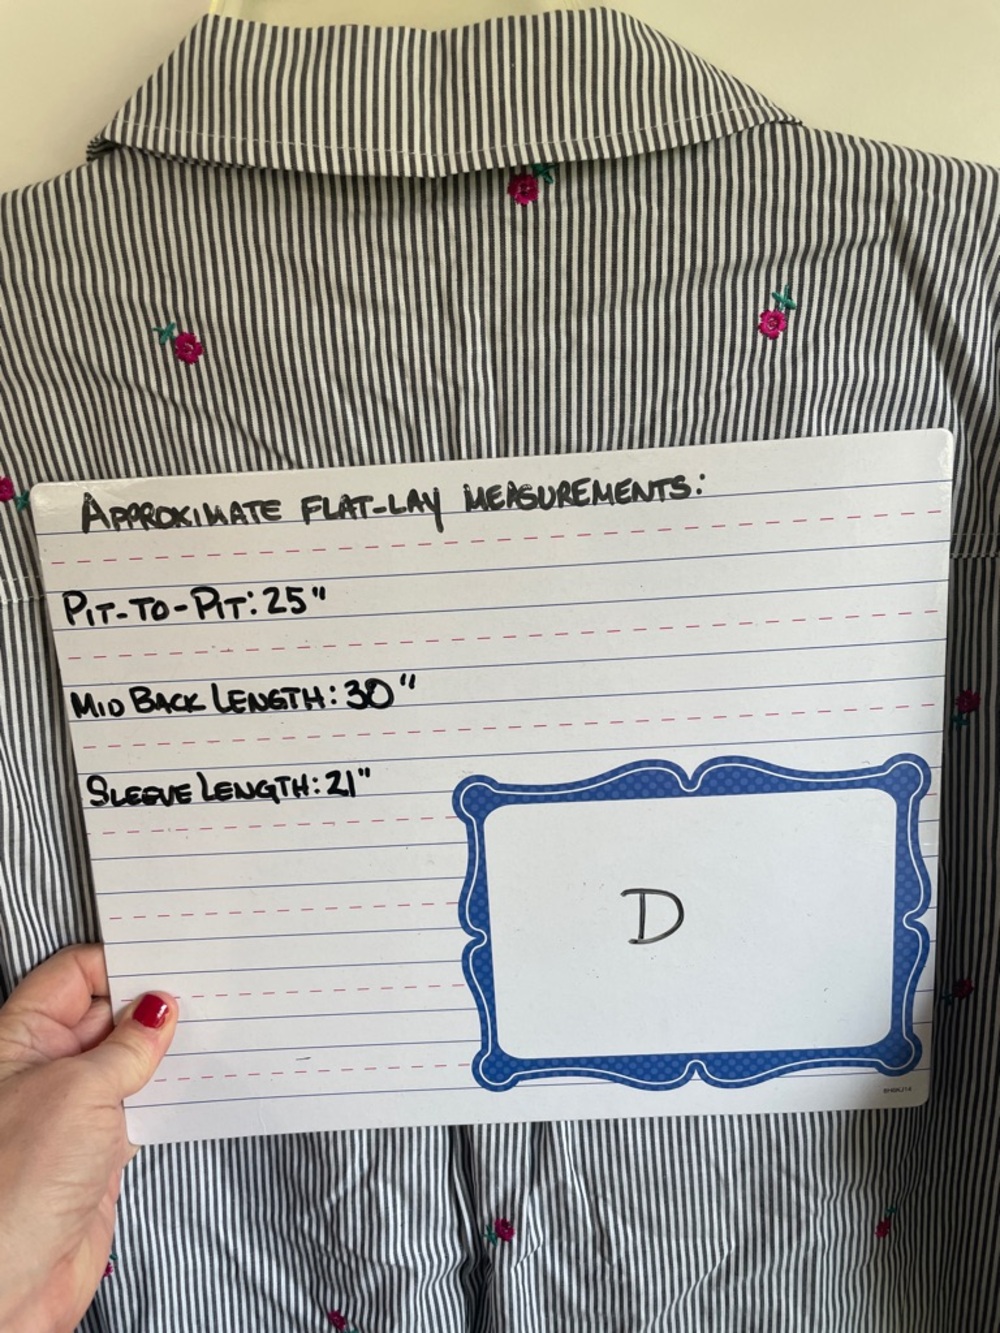 APPROXIMATE FLAT-LAY MEASUREMENTS:
PIT-TO-PIT: 25"
MID BACK LENGTH: 30"
SLEEVE LENGTH: 21"
D